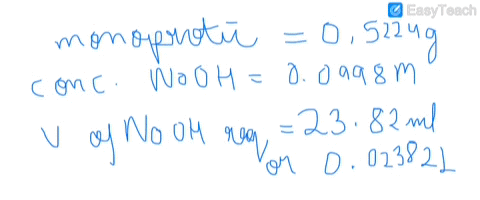 EasyTeach
monoprotic = 0.5224g
conc. NaOH = 0.0998M
V of NaOH req = 23.82ml
or 0.02382L